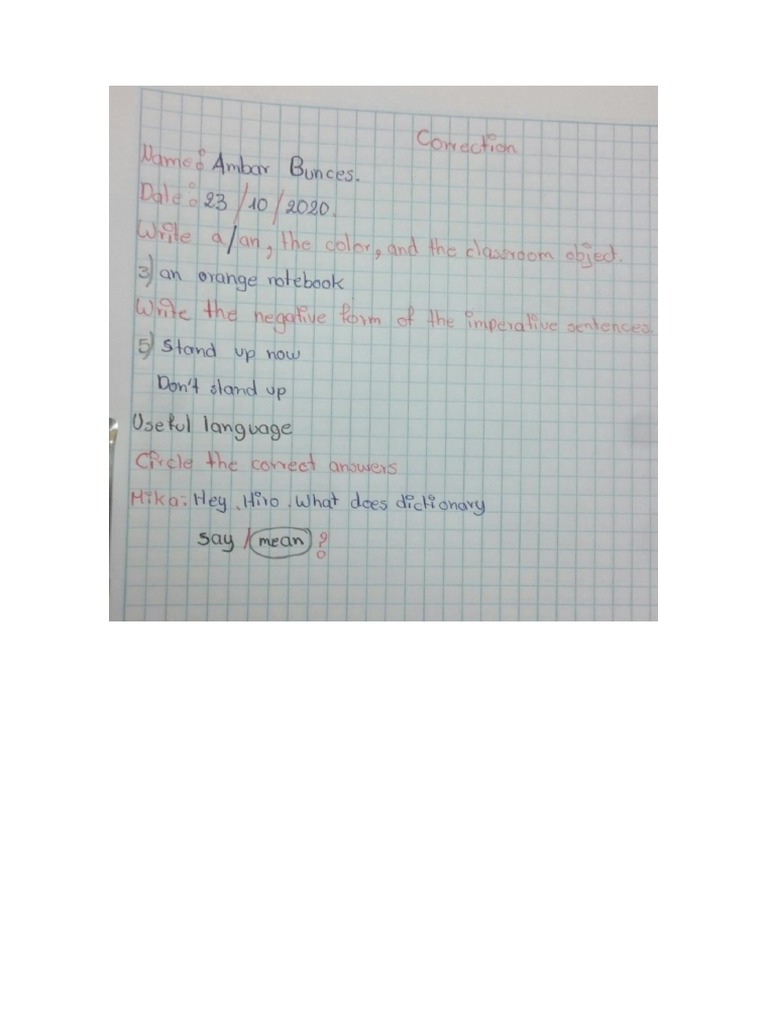 Correction
Name: Ambar Bunces.
Date: 23/10/2020.
Write a/an, the color, and the classroom object.
3) an orange notebook
Write the negative form of the imperative sentences.
5) Stand up now
Don't stand up
Useful language
Circle the correct answers
Mika: Hey, Hiro. What does dictionary
say / mean ?